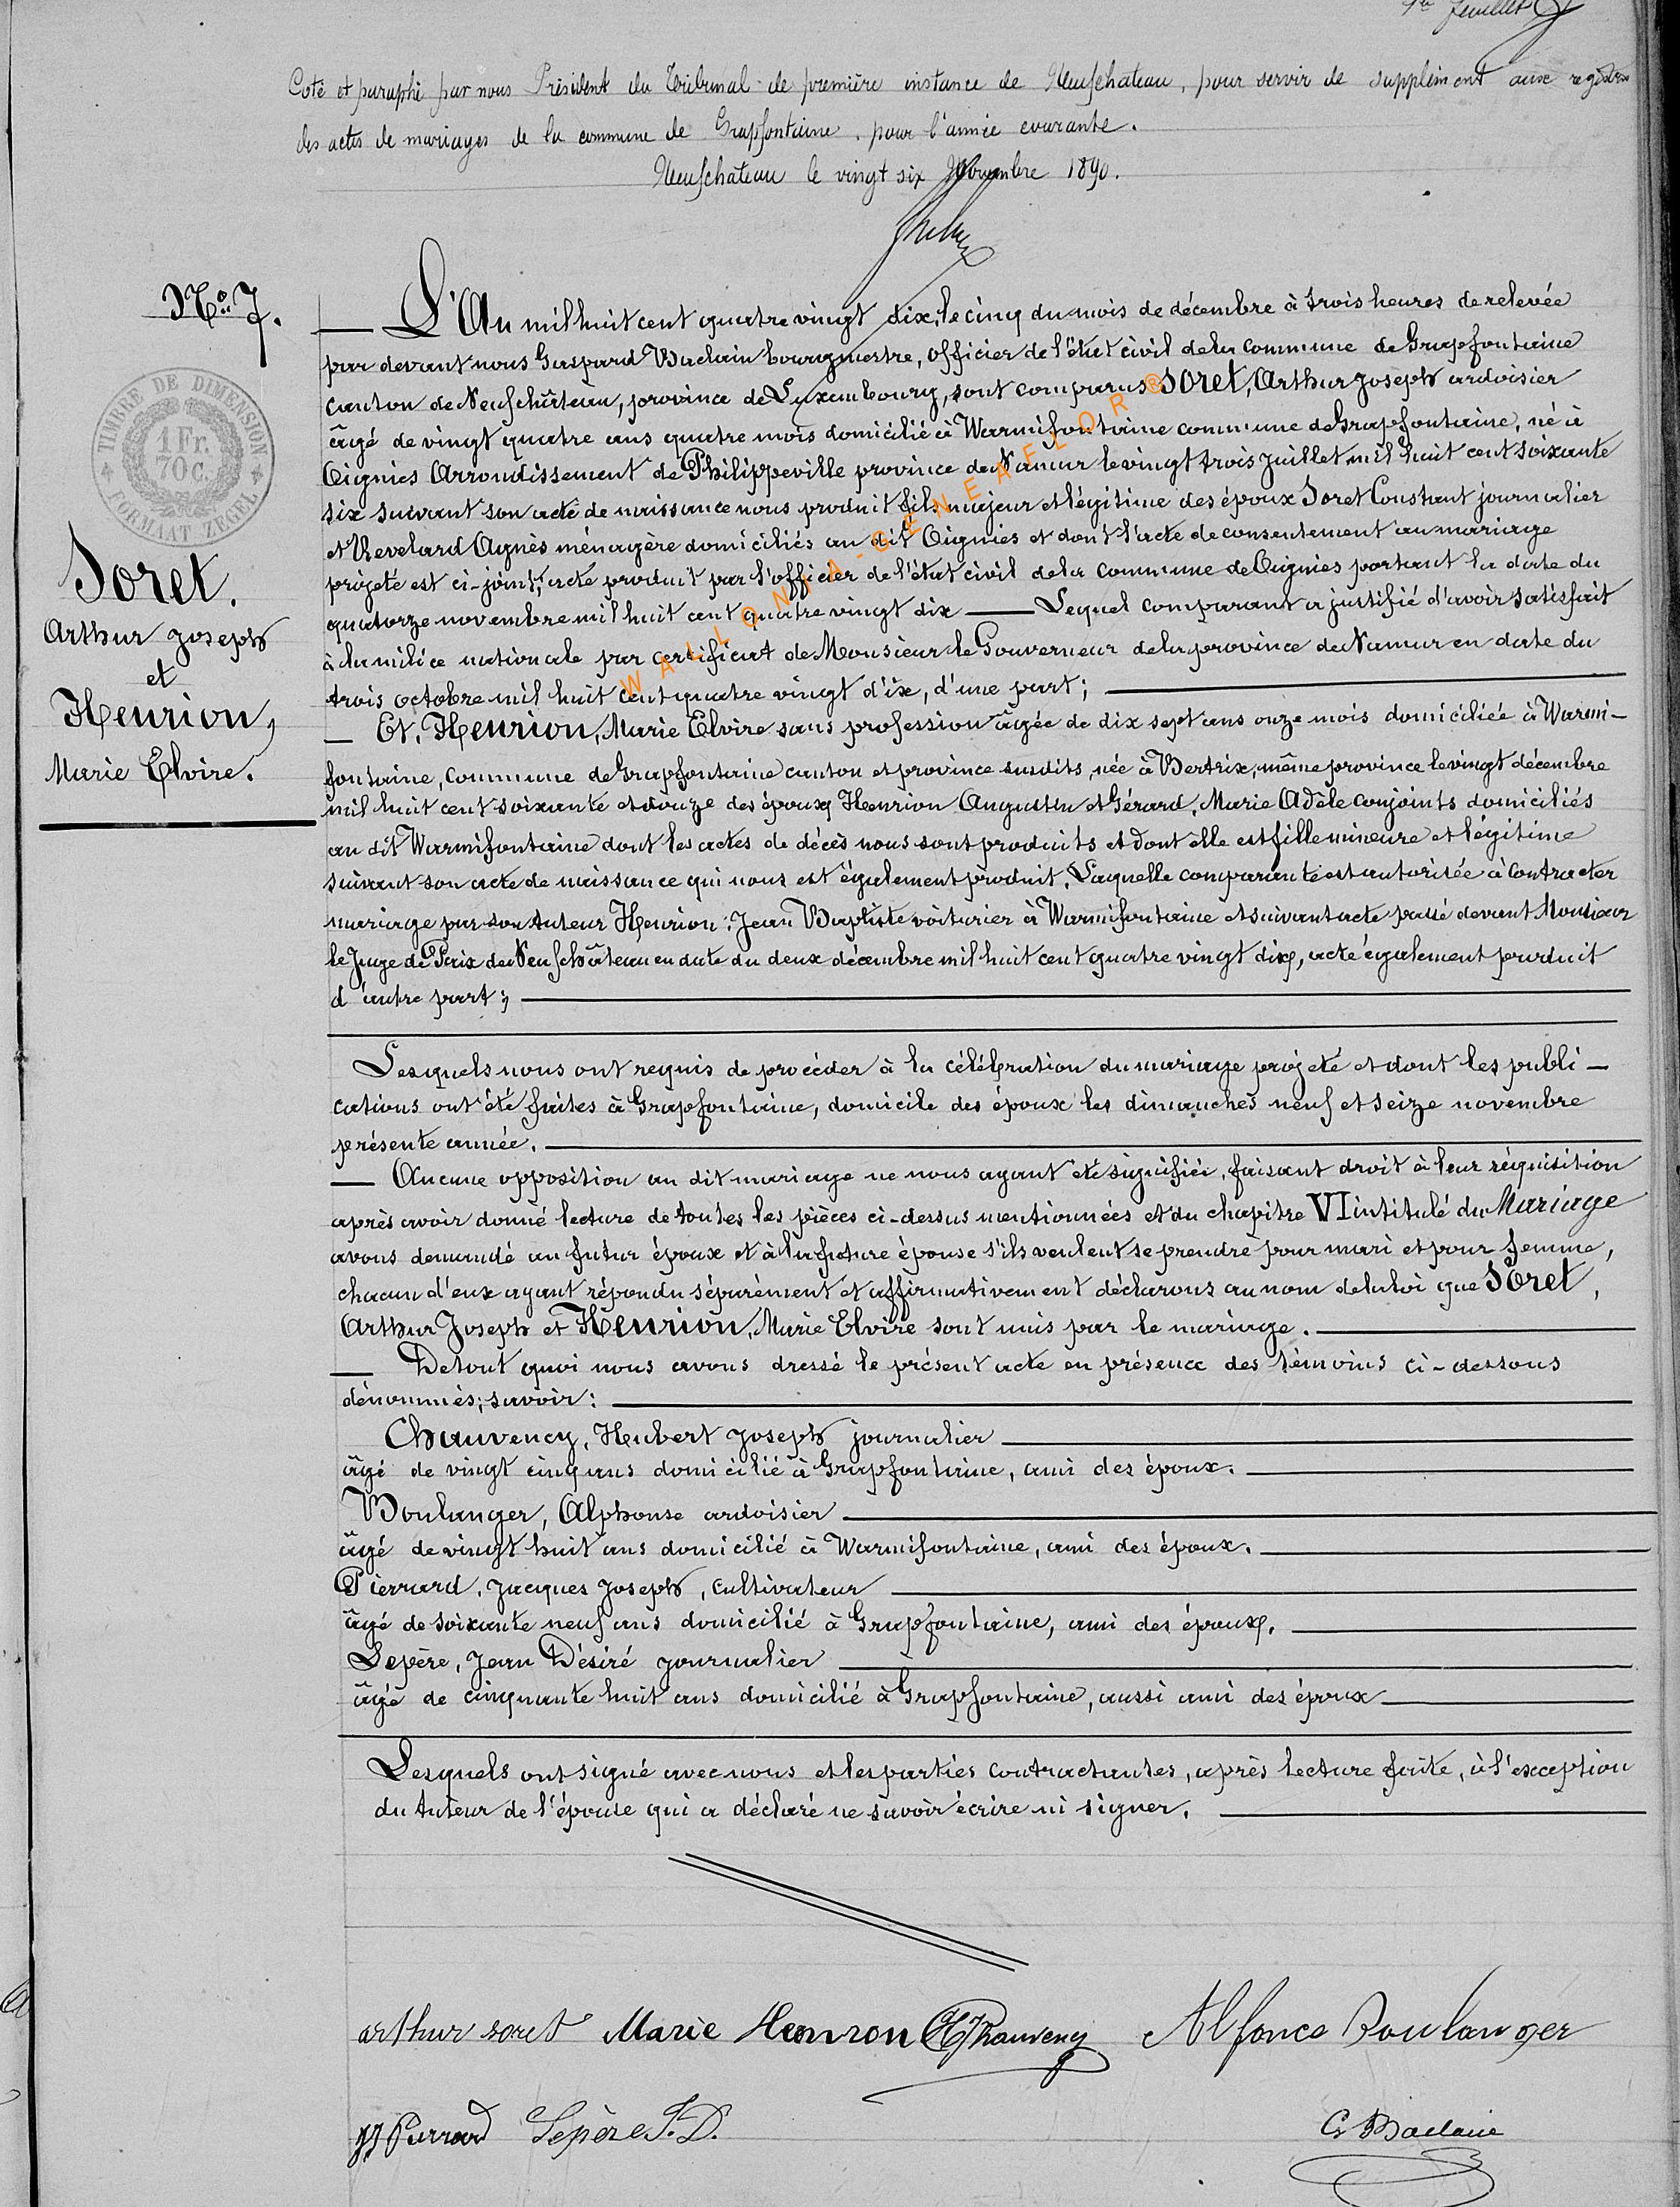 1er feuillet
Coté et paraphé par nous Président du Tribunal de première instance de Neufchateau, pour servir de supplément aux registres
des actes de mariages de la commune de Grapfontaine, pour l'année courante.
Neufchateau le vingt six Novembre 1890.
No. 7.
TIMBRE DE DIMENSION
1 Fr.
70 C.
FORMAAT ZEGEL
Soret.
Arthur Joseph
et
Henrion,
Marie Elvire.
L'An mil huit cent quatre vingt dix, le cinq du mois de décembre à trois heures de relevée
par devant nous Gaspard Baclain bourgmestre, officier de l'état civil de la commune de Grapfontaine
canton de Neufchâteau, province de Luxembourg, sont comparus Soret, Arthur Joseph ardoisier
âgé de vingt quatre ans quatre mois domicilié à Warmifontaine commune de Grapfontaine, né à
Oignies Arrondissement de Philippeville province de Namur le vingt trois Juillet mil huit cent soixante
six suivant son acte de naissance nous produit fils majeur et légitime des époux Soret Constant journalier
et Revelard Agnès ménagère domiciliés au dit Oignies et dont l'acte de consentement au mariage
projeté est ci-joint, acte produit par l'officier de l'état civil de la commune de Oignies portant la date du
quatorze novembre mil huit cent quatre vingt dix — Lequel comparant a justifié d'avoir satisfait
à la milice nationale par certificat de Monsieur le Gouverneur de la province de Namur en date du
trois octobre mil huit cent quatre vingt dix, d'une part;
— Et, Henrion, Marie Elvire sans profession âgée de dix sept ans onze mois domiciliée à Warmi-
fontaine, commune de Grapfontaine canton et province susdits, née à Bertrix, même province le vingt décembre
mil huit cent soixante et douze des époux Henrion Augustin et Gérard, Marie Adèle conjoints domiciliés
au dit Warmifontaine dont les actes de décès nous sont produits et dont elle est fille mineure et légitime
suivant son acte de naissance qui nous est également produit. Laquelle comparante est autorisée à contracter
mariage par son tuteur Henrion, Jean Baptiste voiturier à Warmifontaine et suivant acte passé devant Monsieur
le Juge de Paix de Neufchâteau en date du deux décembre mil huit cent quatre vingt dix, acte également produit
d'autre part;
Lesquels nous ont requis de procéder à la célébration du mariage projeté et dont les publi-
cations ont été faites à Grapfontaine, domicile des époux les dimanches neuf et seize novembre
présente année.
— Aucune opposition au dit mariage ne nous ayant été signifiée, faisant droit à leur réquisition
après avoir donné lecture de toutes les pièces ci-dessus mentionnées et du chapitre VI intitulé du Mariage
avons demandé au futur époux et à la future épouse s'ils veulent se prendre pour mari et pour femme,
chacun d'eux ayant répondu séparément et affirmativement déclarons au nom de la loi que Soret,
Arthur Joseph et Henrion, Marie Elvire sont unis par le mariage.
— De tout quoi nous avons dressé le présent acte en présence des témoins ci-dessous
dénommés; savoir:
Chauvency, Hubert Joseph journalier
âgé de vingt cinq ans domicilié à Grapfontaine, ami des époux.
Boulanger, Alphonse ardoisier
âgé de vingt huit ans domicilié à Warmifontaine, ami des époux.
Pierrard, Jacques Joseph, cultivateur
âgé de soixante neuf ans domicilié à Grapfontaine, ami des époux.
Lepère, Jean Désiré journalier
âgé de cinquante huit ans domicilié à Grapfontaine, aussi ami des époux
Lesquels ont signé avec nous et les parties contractantes, après lecture faite, à l'exception
du tuteur de l'épouse qui a déclaré ne savoir écrire ni signer.
arthur soret Marie Henrion HJ Chauvency Alfonce Boulanger
JJ Pierrard Lepère J.D.
G Baclain
WALLONIA-GENEAFLOR®